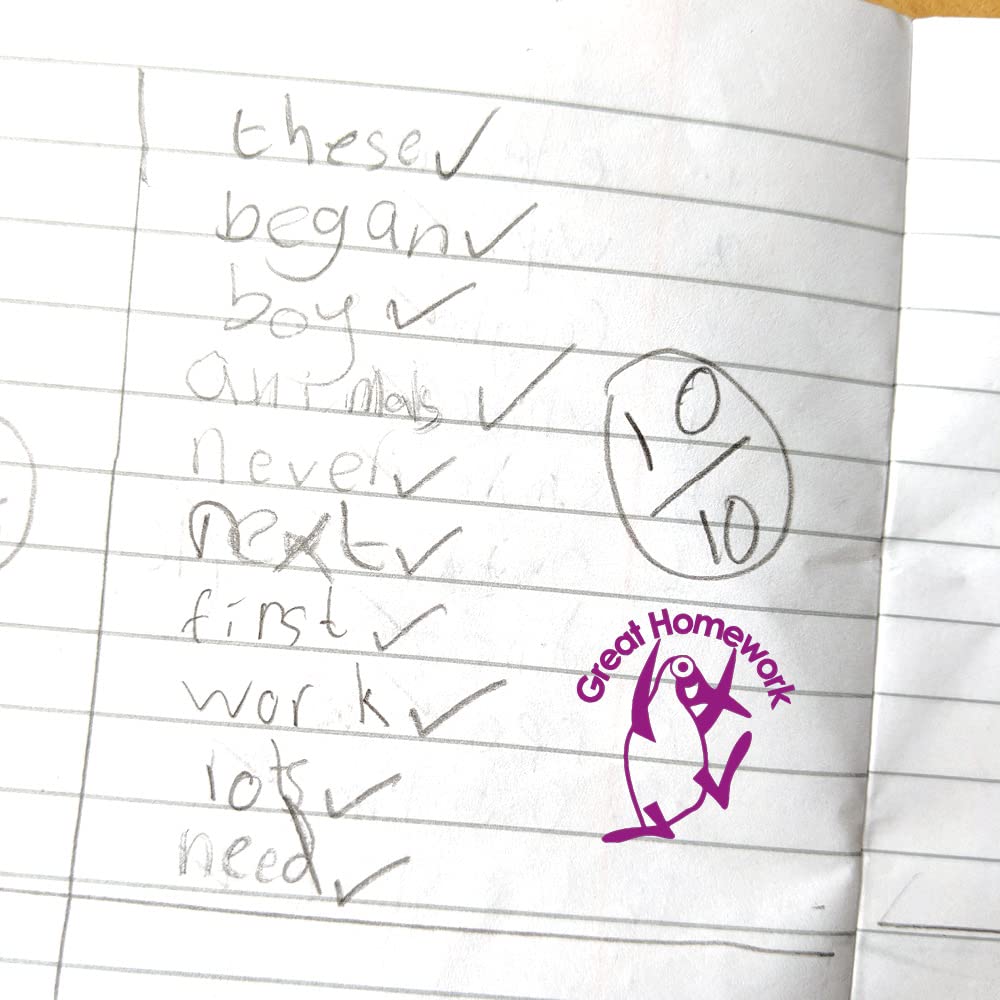 these✓
began✓
boy ✓
animals ✓
never✓
next✓
first ✓
work ✓
lots ✓
need ✓
10/10
Great Homework